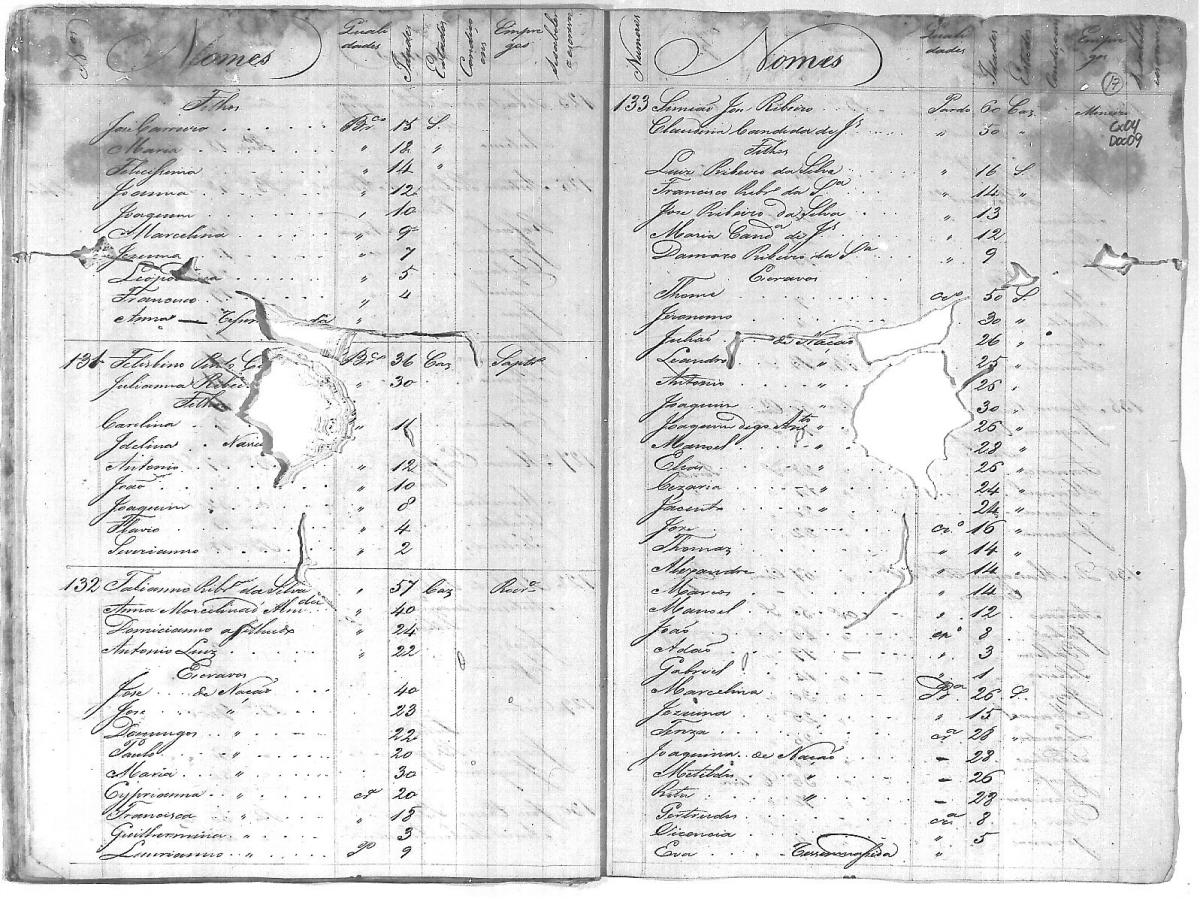 Nomes
Quali
dades
Idades
Estados
Condiç
ons
Empre
gos
Filhos
Jose Carneiro Br.co 15 S.
Maria " 18 "
Felicissima " 14 "
Joanna " 12
Joaquim " 10
Marcelina " 9
Jezuina " 7
Leopoldina " 5
Francisco " 4
Anna "
131 Felisbino Pinto Br.co 36 Caz
Julianna Ribei " 30
Filhos
Carolina "
Idelina
Antonio " 12
João " 10
Joaquim " 8
Flavio " 4
Severianno " 2
132 Fabianno Ribr.o da Silva " 57 Caz Rocr.o
Anna Marcelina d " 40
Domicianno " 24
Antonio Luiz " 22
Escravos
Jose de Nação 40
Jose " 23
Domingos " 22
Paulo " 20
Maria " 30
Cyprianna " cr.a 20
Francisca " 18
Guilhermina " 3
Laurianno " 9
Numeros
Nomes
Quali
dades
Idades
Estados
Empre
gos
17
Cx04
Doc09
133 Simeão Jose Ribeiro Pardo 60 Caz Mineiro
Claudina Candida de J.s " 50 "
Filhos
Luiz Ribeiro da Silva " 16 S
Francisco Ribr.o da S.a " 14 "
Jose Ribeiro da Silva " 13
Maria Cand.a de J.s " 12
Damazo Ribeiro da S.a " 9
Escravos
Thome cr.o 50 S
Jeronimo 30 "
Julião de Nação 26 "
Leandro " 25 "
Antonio " 26 "
Joaquim " 30 "
Joaquim digo Ant.to " 26 "
Manoel " 28 "
Elias " 26 "
Cezaria " 24 "
Jacinto " 24 "
Jose cr.o 16 "
Thomaz " 14 "
Alexandre " 14 "
Marcos " 14
Manoel " 12
João cr.o 8
Adão " 3
Gabriel " 1
Marcelina 26 S
Jezuina " 15 "
Tereza cr.a 26 "
Joaquina de Nação - 28
Metildes " - 26
Rita " - 28
Gertrudes cr.a 8
Vicencia " 5
Eva "